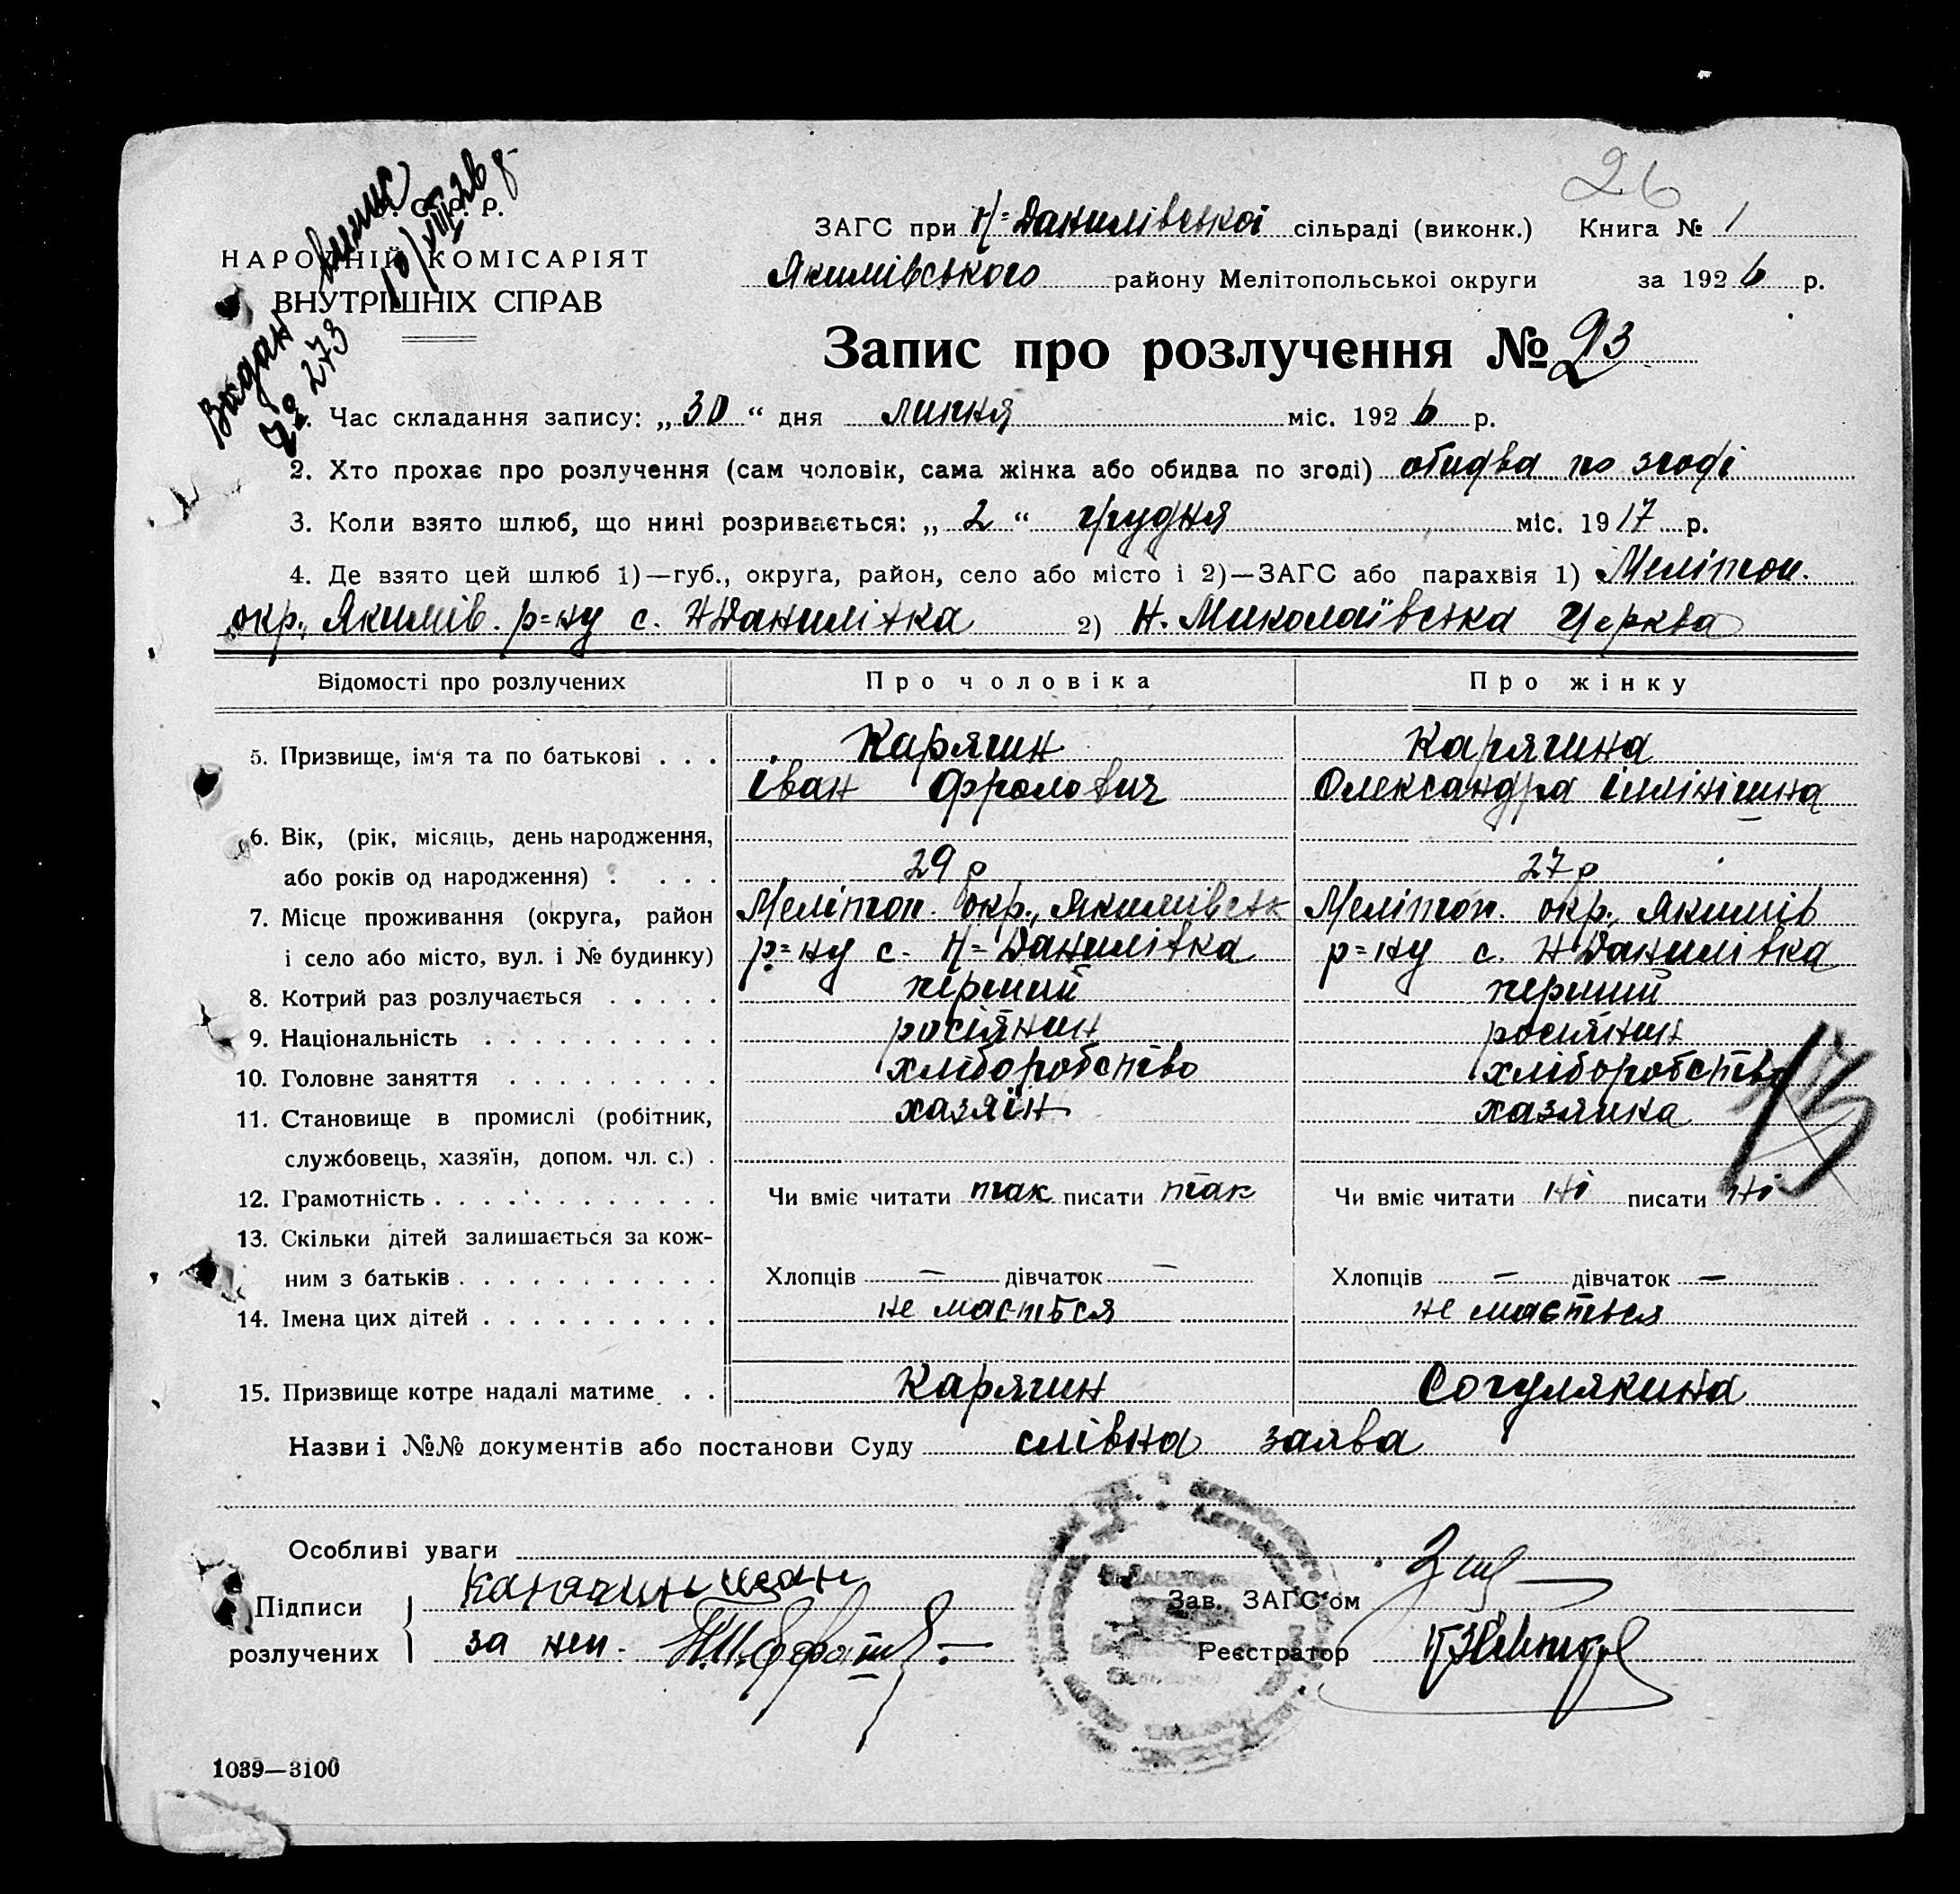 26
Видан випис
№ 273 10/VIII 26 р
У. С. Р. Р.
НАРОДНІЙ КОМІСАРІЯТ
ВНУТРІШНІХ СПРАВ
ЗАГС при Н=Данилівської сільраді (виконк.) Книга № 1
Якимівського району Мелітопольської округи за 1926 р.
Запис про розлучення № 23
1. Час складання запису: „30“ дня липня міс. 1926 р.
2. Хто прохає про розлучення (сам чоловік, сама жінка або обидва по згоді) обидва по згоді
3. Коли взято шлюб, що нині розривається: „2“ грудня міс. 1917 р.
4. Де взято цей шлюб 1)—губ., округа, район, село або місто і 2)—ЗАГС або парахвія 1) Мелітоп.
окр., Якимів. р=ну с. Н Данилівка 2) Н. Миколаївська Церква
Відомості про розлучених Про чоловіка Про жінку
5. Призвище, ім'я та по батькові . . . Карягин Карягина
Іван Фролович Олександра Іллінішна
6. Вік, (рік, місяць, день народження,
або років од народження) . . . . 29 р 27 р
7. Місце проживання (округа, район Мелітоп. окр., Якимівськ Мелітоп. окр., Якимів
і село або місто, вул. і № будинку) р=ну с. Н=Данилівка р=ну с. Н Данилівка
8. Котрий раз розлучається . . . . . перший перший
9. Національність . . . . . . . . . . росіянин росиянин
10. Головне заняття . . . . . . . . . хліборобство хліборобство
11. Становище в промислі (робітник, хазяїн хазяика
службовець, хазяїн, допом. чл. с.) .
13
12. Грамотність . . . . . . . . . . . . Чи вміє читати так писати так Чи вміє читати ні писати ні
13. Скільки дітей залишається за кож-
ним з батьків . . . . . . . . . . . Хлопців — дівчаток — Хлопців — дівчаток —
14. Імена цих дітей . . . . . . . . . . не мається не мається
15. Призвище котре надалі матиме . . Карягин Согулякина
Назви і №№ документів або постанови Суду слівна заява
Особливі уваги
Підписи Карягин Иван Зав. ЗАГС'ом
розлучених за неп. Реєстратор
1039—3100